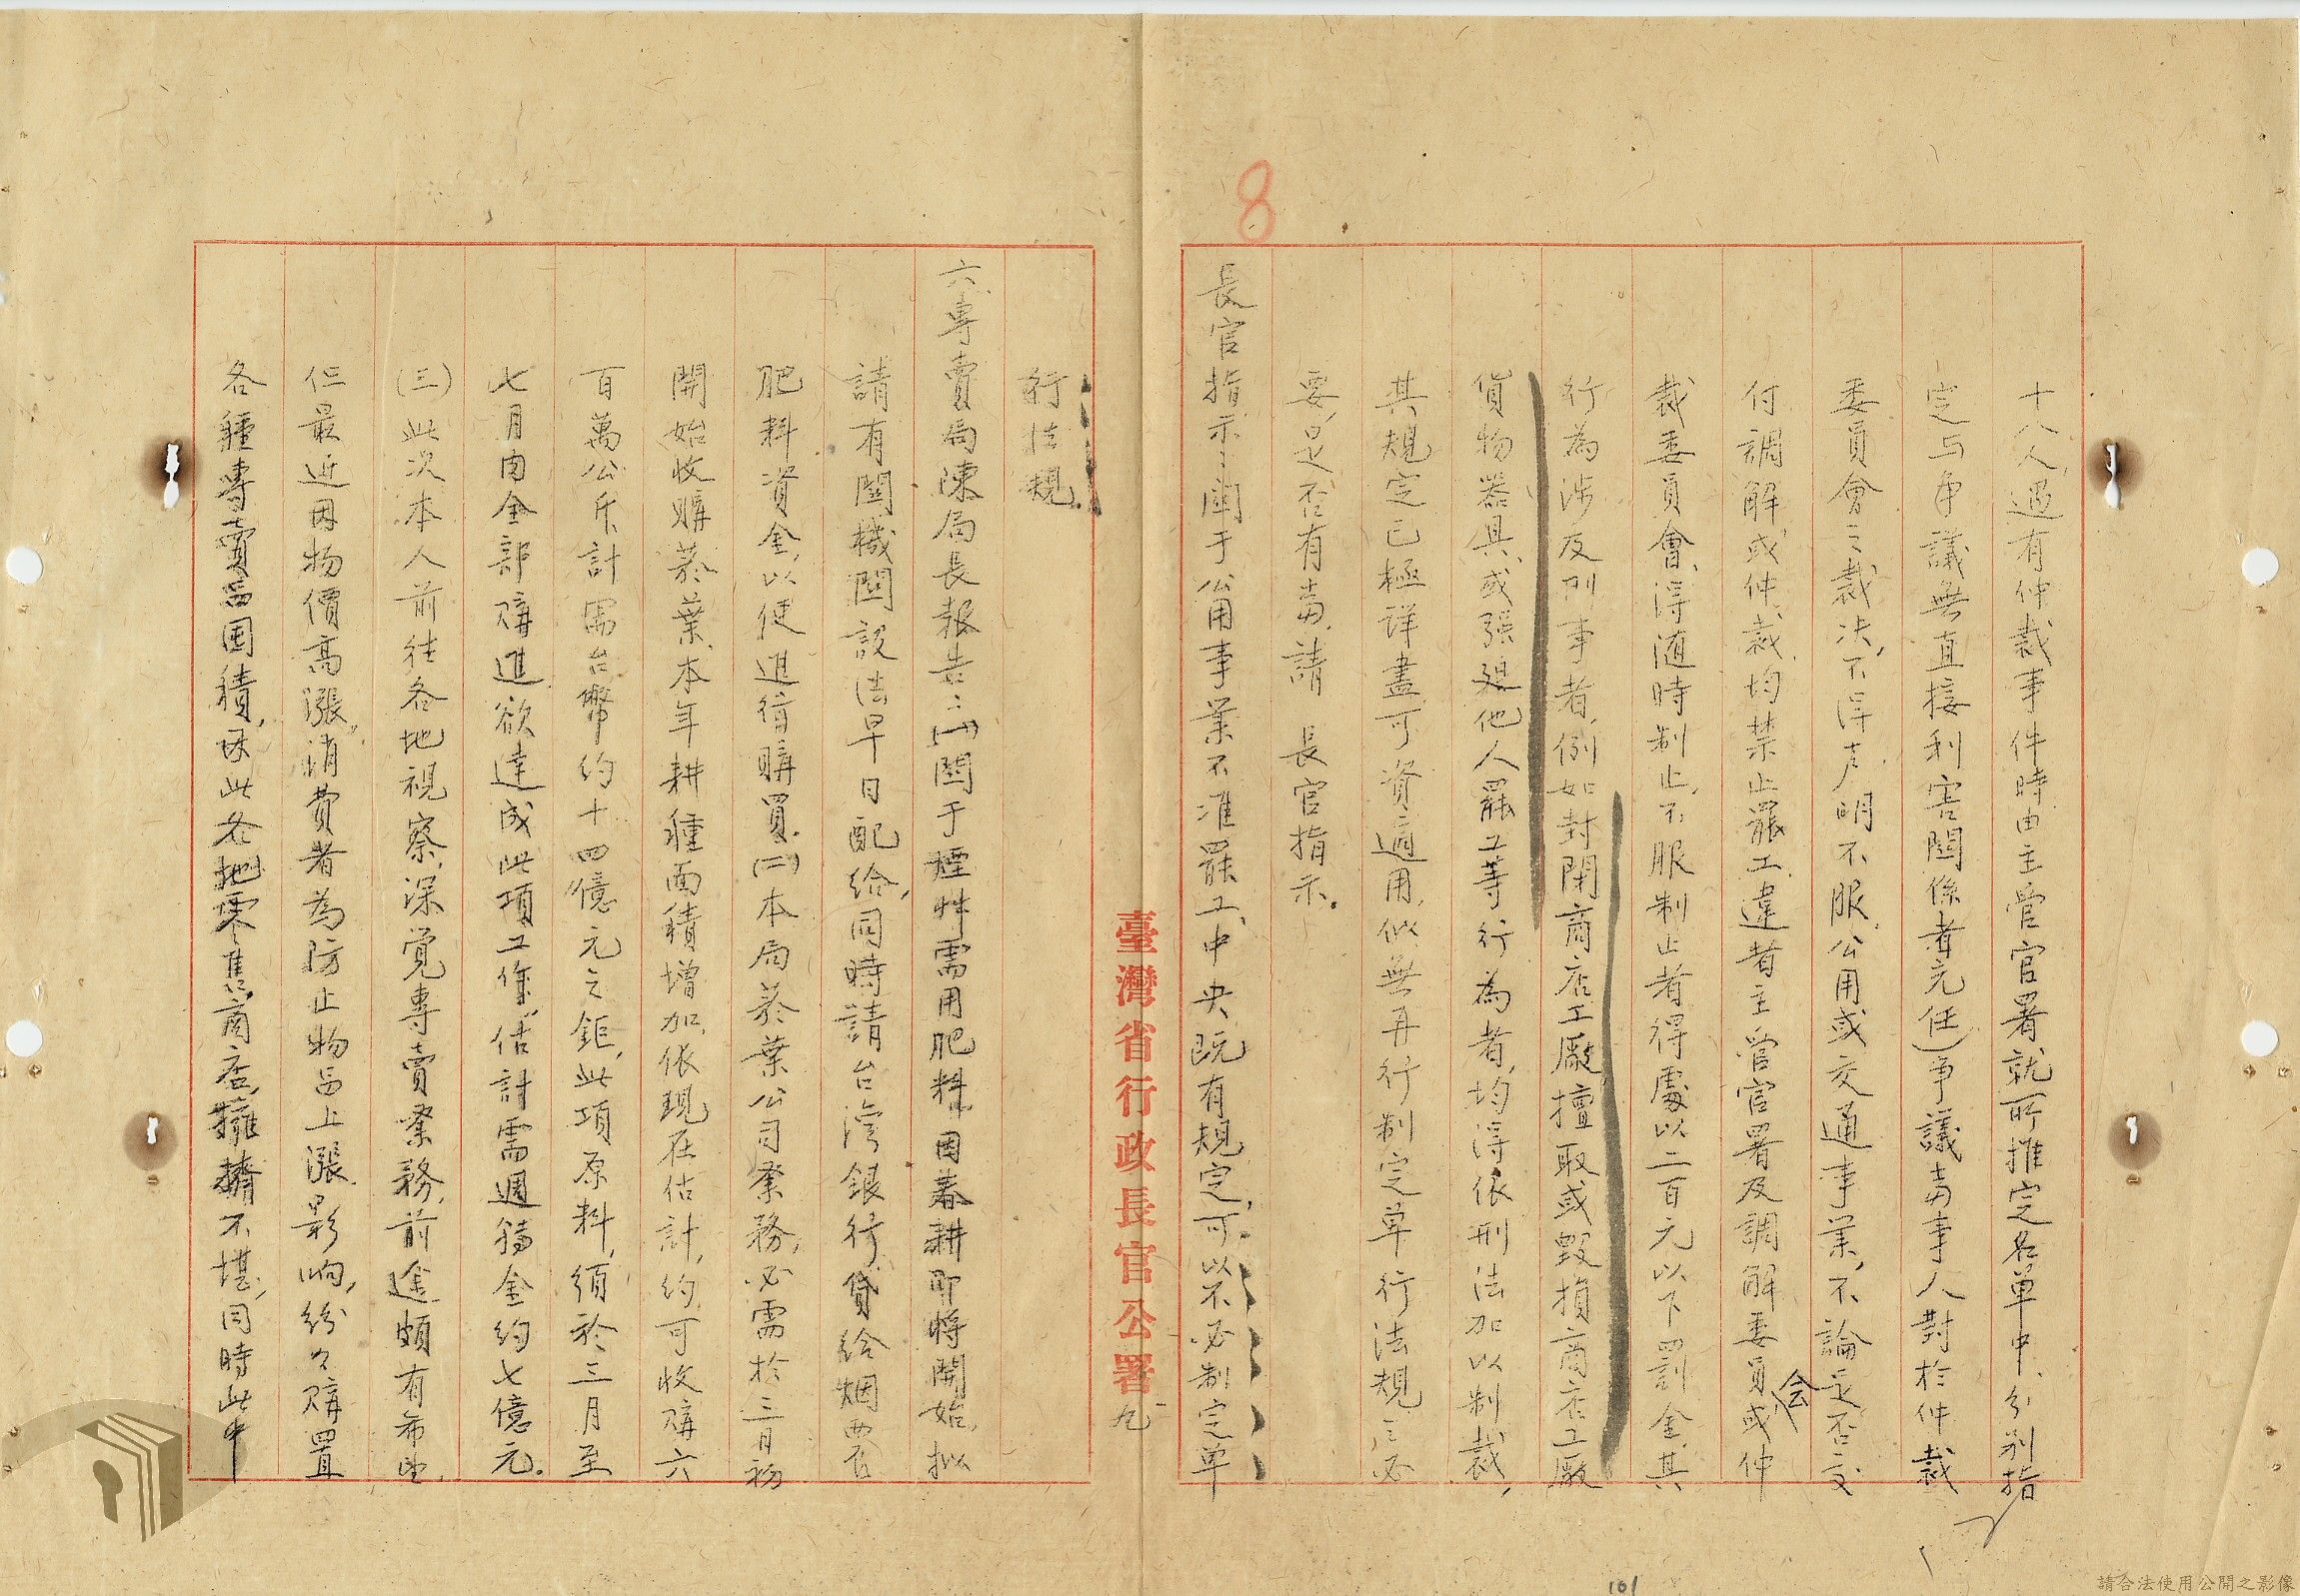 8
十八人,遇有仲裁事件時由主管官署就所推定名單中、分别指
定与争議無直接利害関係者充任)争議当事人對於仲裁
委員會之裁决,不得声明不服.公用或交通事業,不論是否交
付調解或仲裁.均禁止罷工.違者主管官署及調解委員会或仲
裁委員會、得随時制止,不服制止者得處以二百元以下罰金.其
行為涉及刑事者,例如封閉商店工廠擅取或毀損商店工廠
貨物器具、或强廹他人罷工等行為者,均得依刑法加以制裁,
其規定已極詳盡可資適用,似無再行制定单行法規之必
要,是否有当.請 長官指示。
長官指示:関于公用事業不准罷工、中央既有規定,可以不必制定单
臺灣省行政長官公署 九
行法規.
六、專賣局陳局長報告:(一)関于煙草需用肥料.因春耕即將開始,拟
請有関機関設法早日配給,同時請台湾銀行貸給烟農
肥料資金,以便進行購買.(二)本局菸葉公司業務,必需於三月初
開始收購菸葉,本年耕種面積增加,依現在估計,約可收購六
百萬公斤計需台幣約十四億元之鉅,此項原料,須於三月至
七月内全部購進欲達成此項工作,估計需週轉金約七億元.
(三)此次本人前往各地視察,深覚專賣業務,前途頗有希望.
仨最近因物價高漲,消費者為防止物品上漲影响,紛々購置
各種專賣品囤積,故此各地零售商店,擁擠不堪,同時此中
101
請合法使用公開之影像